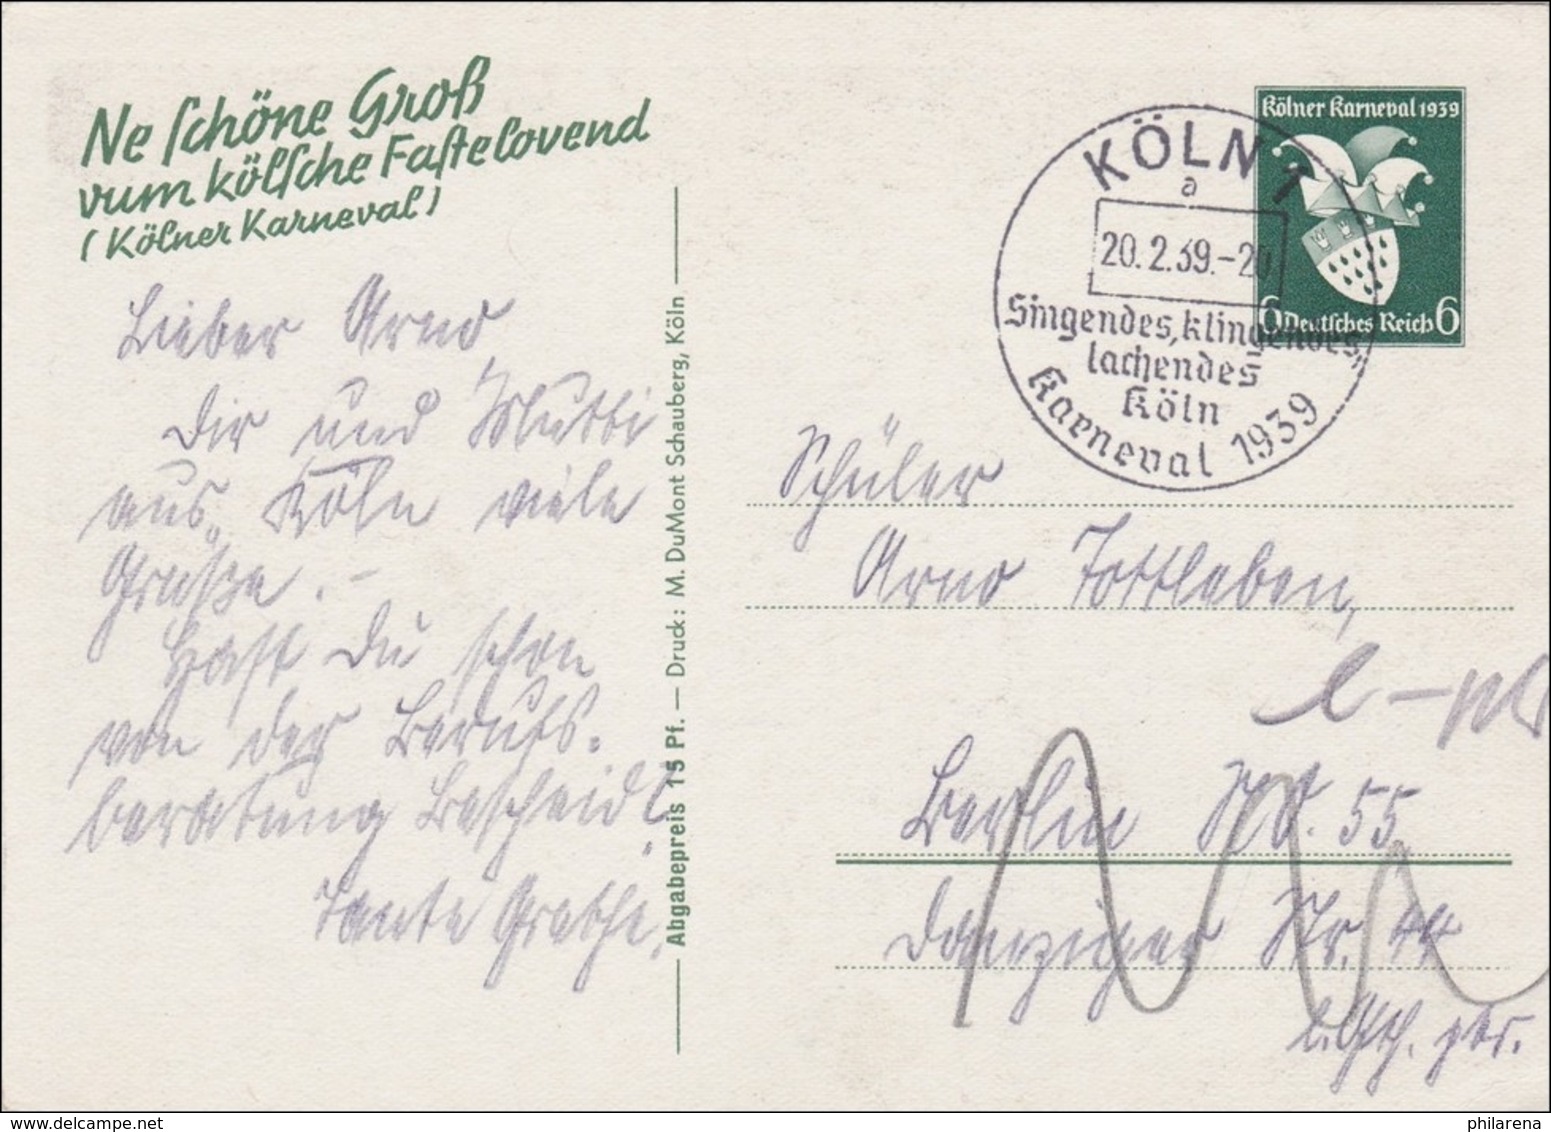 Ne schöne Groß
vum kölsche Fastelovend
(Kölner Karneval)
Lieber Arno,
Dir und Mutti
aus Köln viele
Grüße. –
Hast Du schon
von der Berufs-
beratung Bescheid?
Tante Grethe.
Abgabepreis 15 Pf. — Druck: M. DuMont Schauberg, Köln
Kölner Karneval 1939
6 Deutsches Reich 6
KÖLN 1
a
20.2.39.-20
Singendes, klingendes,
lachendes
Köln
Karneval 1939
Schüler
Arno Tottleben,
Berlin NO. 55
Danziger Str. 44
philarena